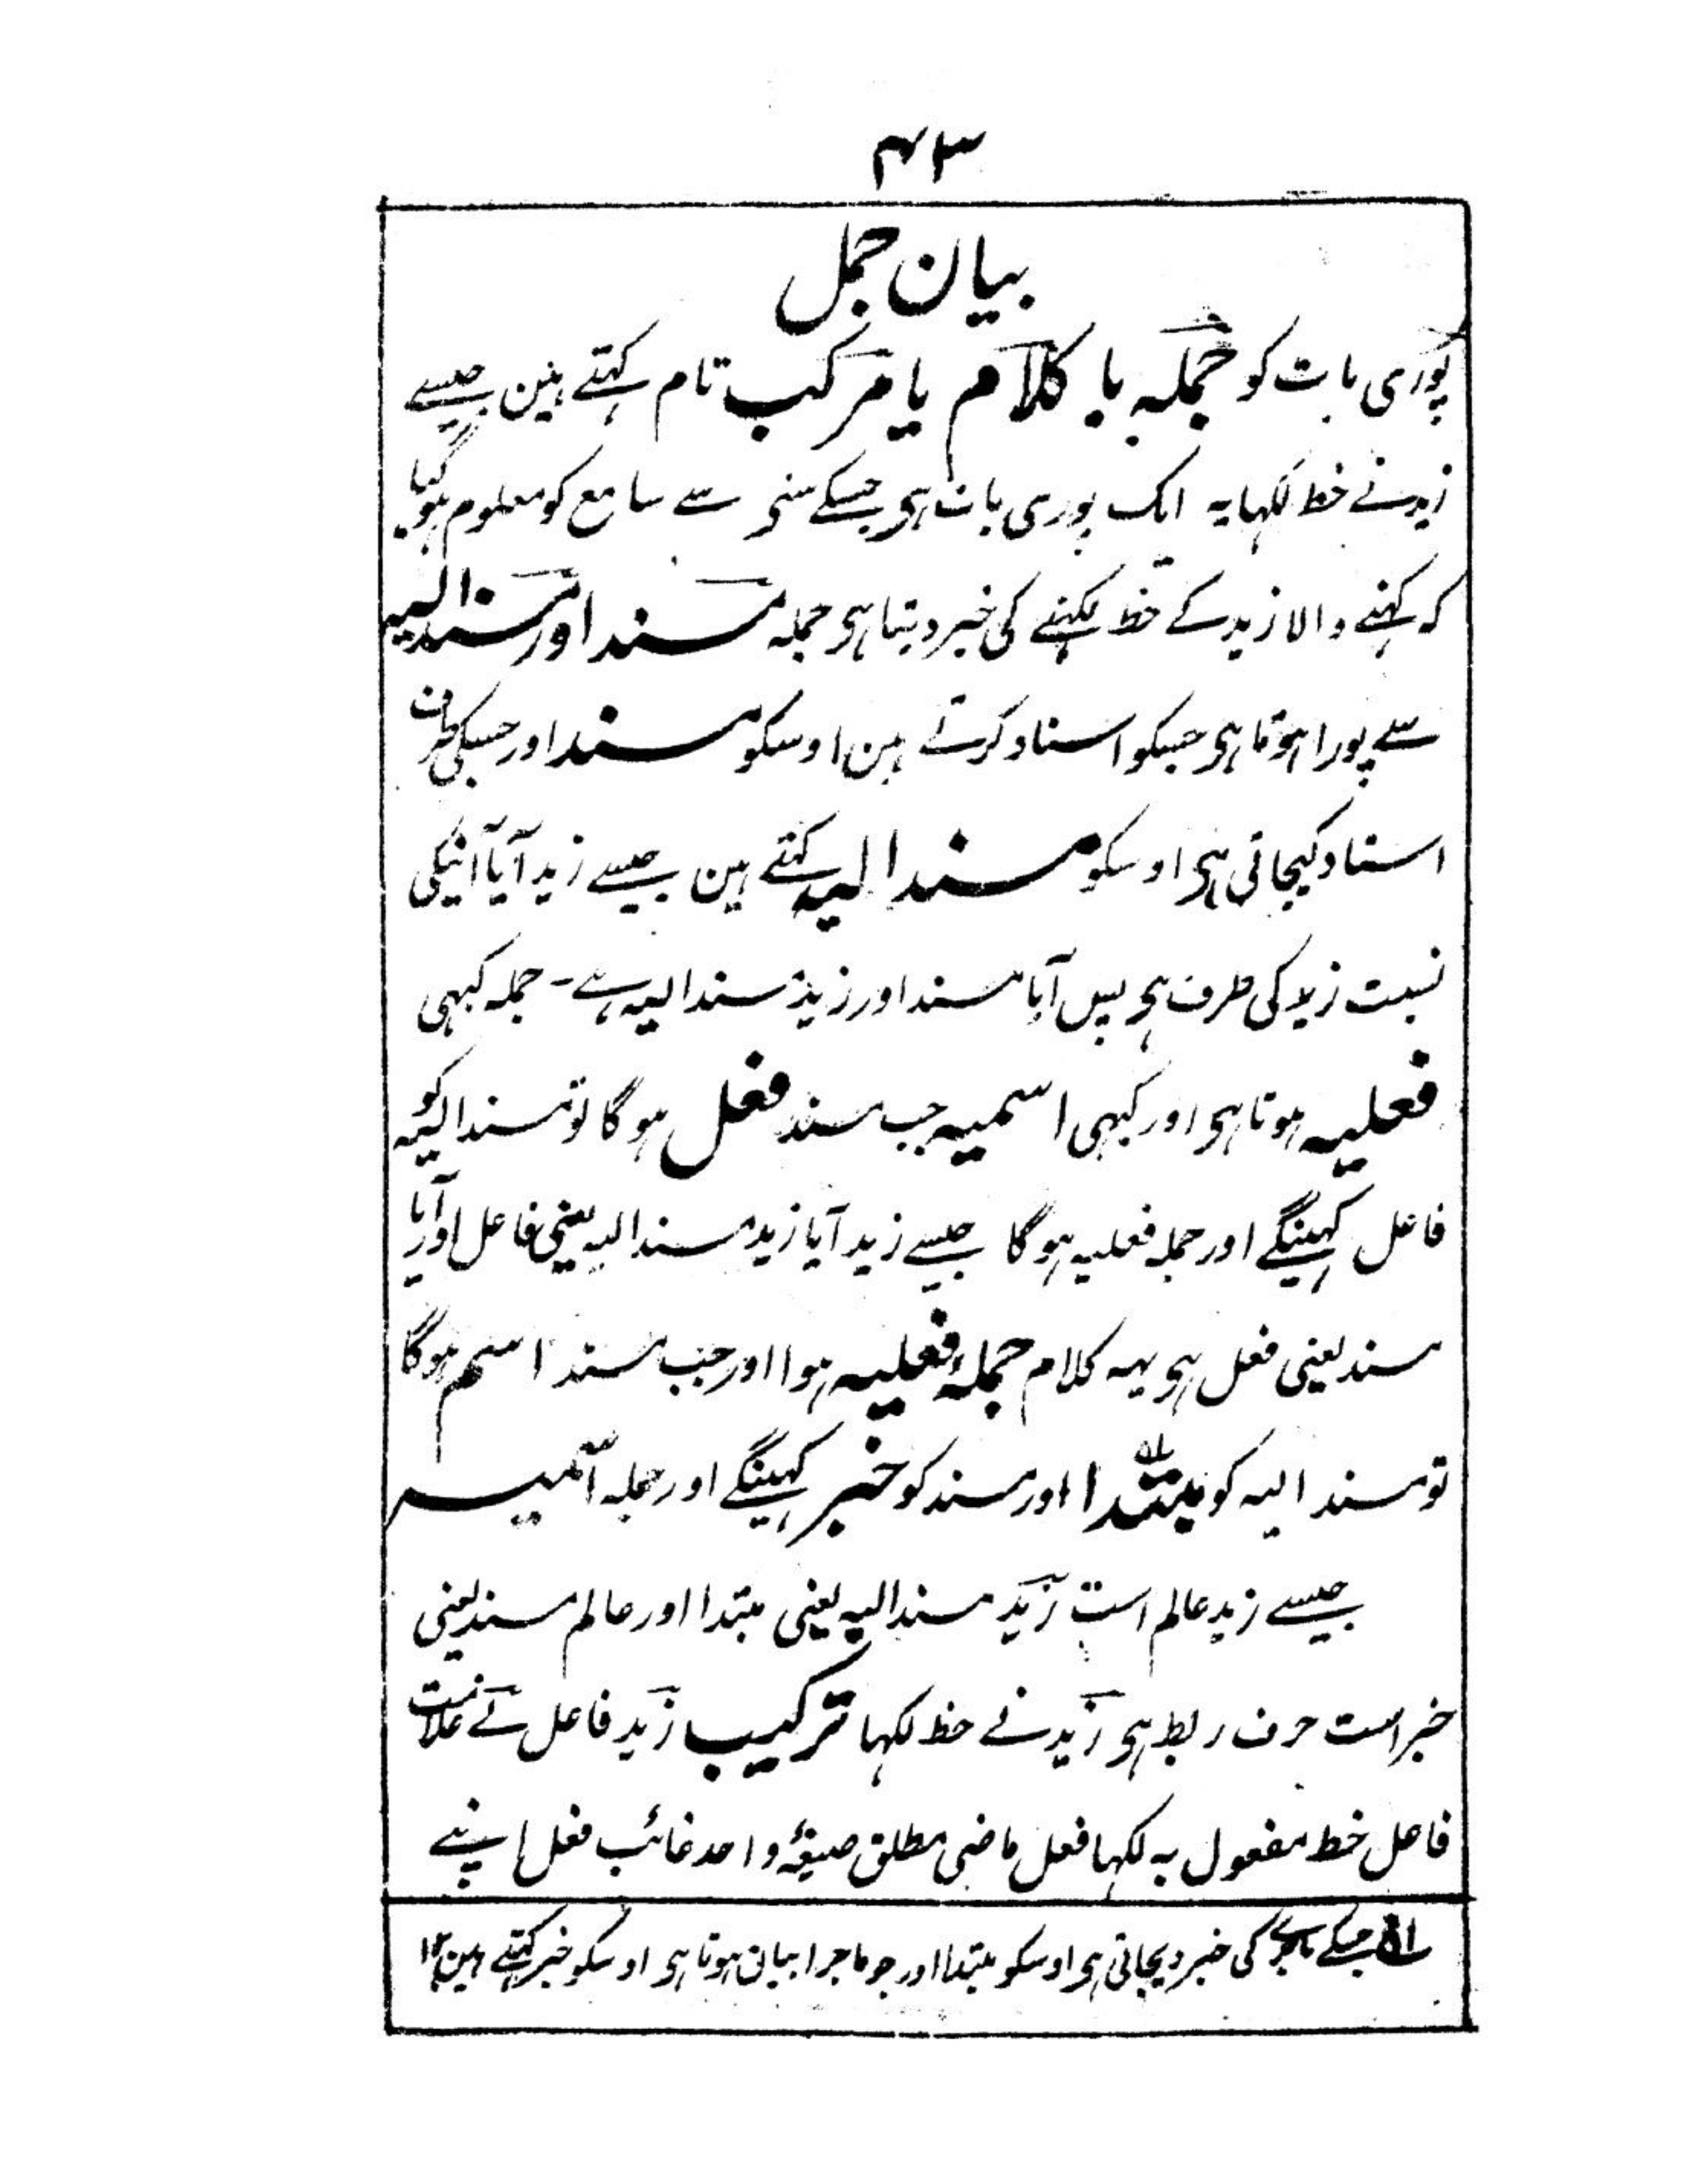 ۴۳
بیان جمل
پوری بات کو جملہ یا کلام یا مرکب تام کہتے ہین جیسے
زید نے خط لکہا یہ ایک پوری بات ہی جسکے سننے سے سامع کو معلوم ہوگیا
کہ کہنے والا زید کے خط لکہنے کی خبر دیتا ہی جملہ مسند اور مسند الیہ
سے پورا ہوتا ہی جسکو اسناد کرتے ہین اوسکو مسند اور جسکی طرف
اسناد کیجاتی ہی اوسکو مسند الیہ کہتے ہین جیسے زید آیا آنیکی
نسبت زید کی طرف ہی پس آیا مسند اور زید مسند الیہ ہے۔ جملہ کبہی
فعلیہ ہوتا ہی اور کبہی اسمیہ جب مسند فعل ہوگا تو مسند الیہ کو
فاعل کہینگے اور جملہ فعلیہ ہوگا جیسے زید آیا زید مسند الیہ یعنی فاعل اور آیا
مسند یعنی فعل ہی یہہ کلام جملۂ فعلیہ ہوا اور جب مسند اسم ہوگا
تو مسند الیہ کو مبتدا اور مسند کو خبر کہینگے اور جملہ اسمیہ
جیسے زید عالم است زید مسند الیہ یعنی مبتدا اور عالم مسند یعنی
خبر است حرف ربط ہی زید نے خط لکہا ترکیب زید فاعل نے علامت
فاعل خط مفعول بہ لکہا فعل ماضی مطلق صیغۂ واحد غائب فعل اپنے
لہ جسکے ماجرے کی خبر دیجاتی ہی اوسکو مبتدا اور جو ماجرا بیان ہوتا ہی اوسکو خبر کہتے ہین ۱۲